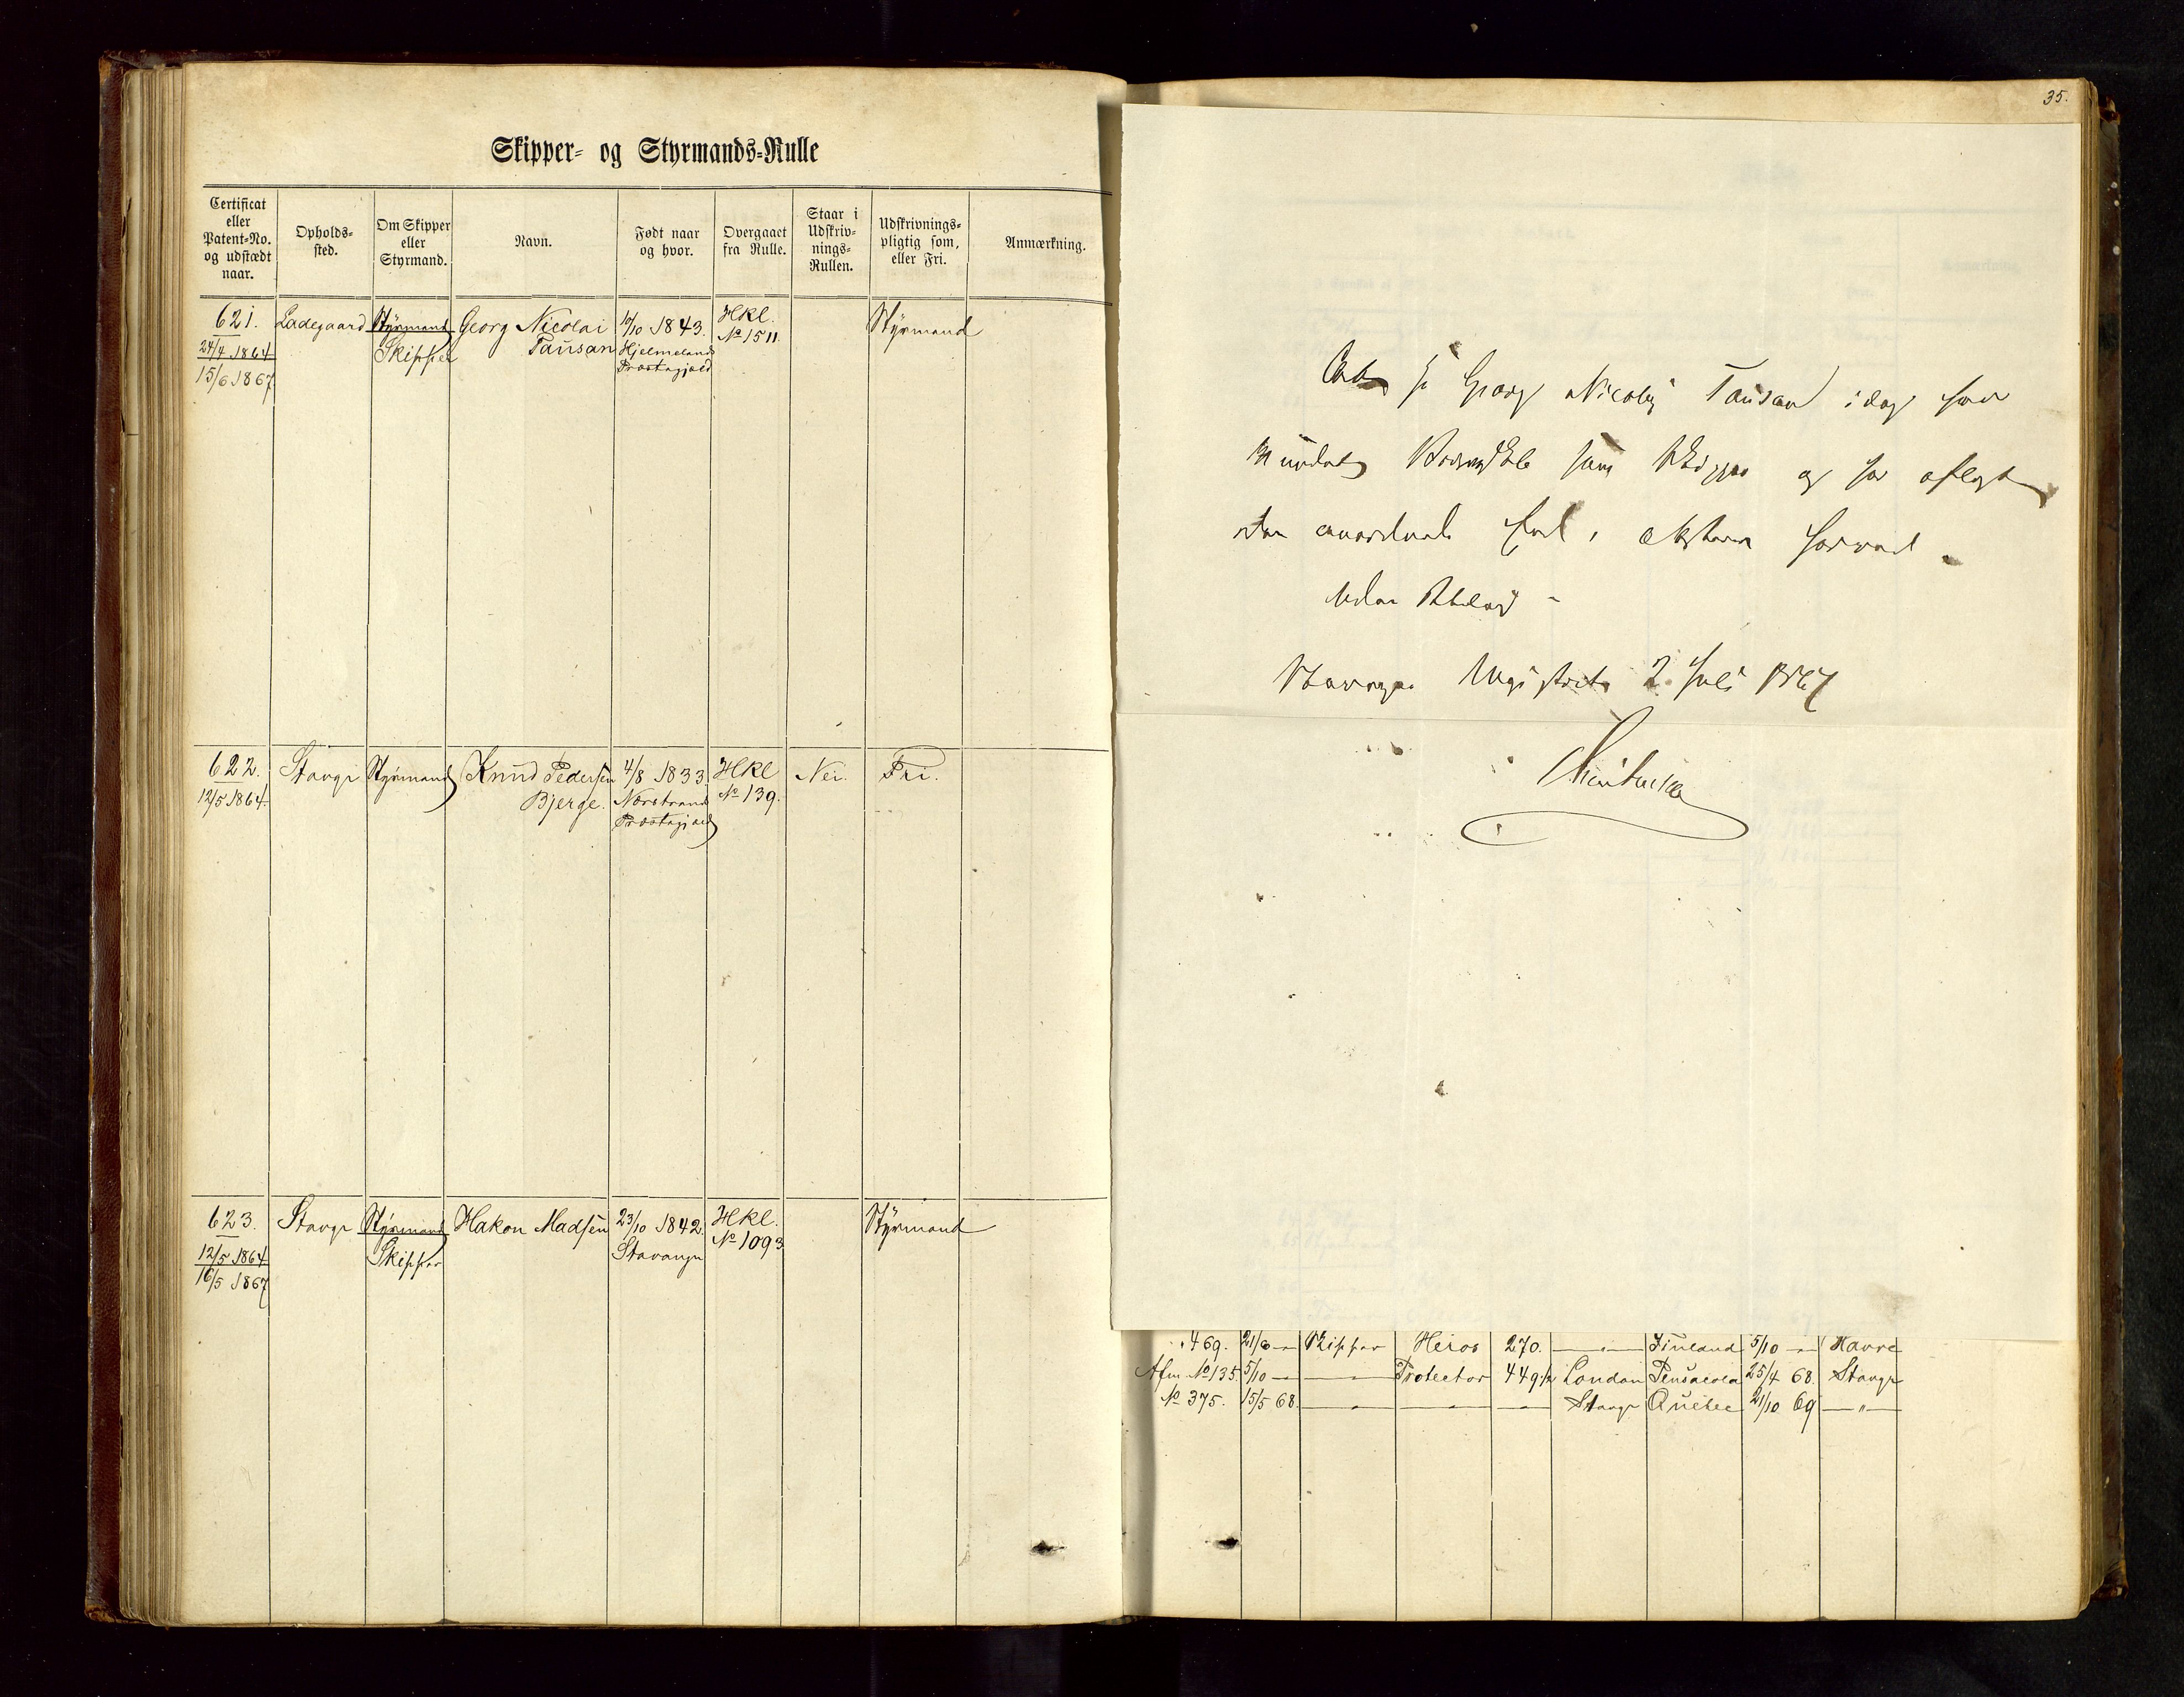 35.
Skipper- og Styrmands-Rulle
Certificat eller Patent-No. og udstædt naar.
Opholds-sted.
Om Skipper eller Styrmand.
Navn.
Født naar og hvor.
Overgaaet fra Rulle.
Staar i Udskriv-nings-Rullen.
Udskrivnings-pligtig som, eller Fri.
Anmærkning.
621. Ladegaard Styrmand Georg Nicolai 10/10 1843. Hkl. Styrmand
24/4 1864 Skipper Tausan Hjelmelands No 1511
15/6 1867 Præstegjæld
622. Stavgr Styrmand Knud Pedersen 4/8 1833. Hkl Nei. Fri.
12/5 1864. Bjerge. Nerstrand No 139.
Præstegjæld
623. Stavgr Styrmand Hakon Madsen 23/10 1842. Hkl. Styrmand
12/5 1864 Skipper Stavanger No 1093
16/5 1867
Georg Nicolai Tausan idag har
som Skipper og har aflagt
den anordnede Eed,
Stavanger Magistrat 2 Juli 1867
Christensen
469. 21/6 — Skipper Heros 270. — " — Finland 5/10 — Havre
Afm No 135. 5/10 — — " — Protector 449 1/2 London Pensacola 25/4 68. Stavgr
No 375. 15/5 68. — " — — " — — " — Stavgr Quebec 21/10 69 — " —